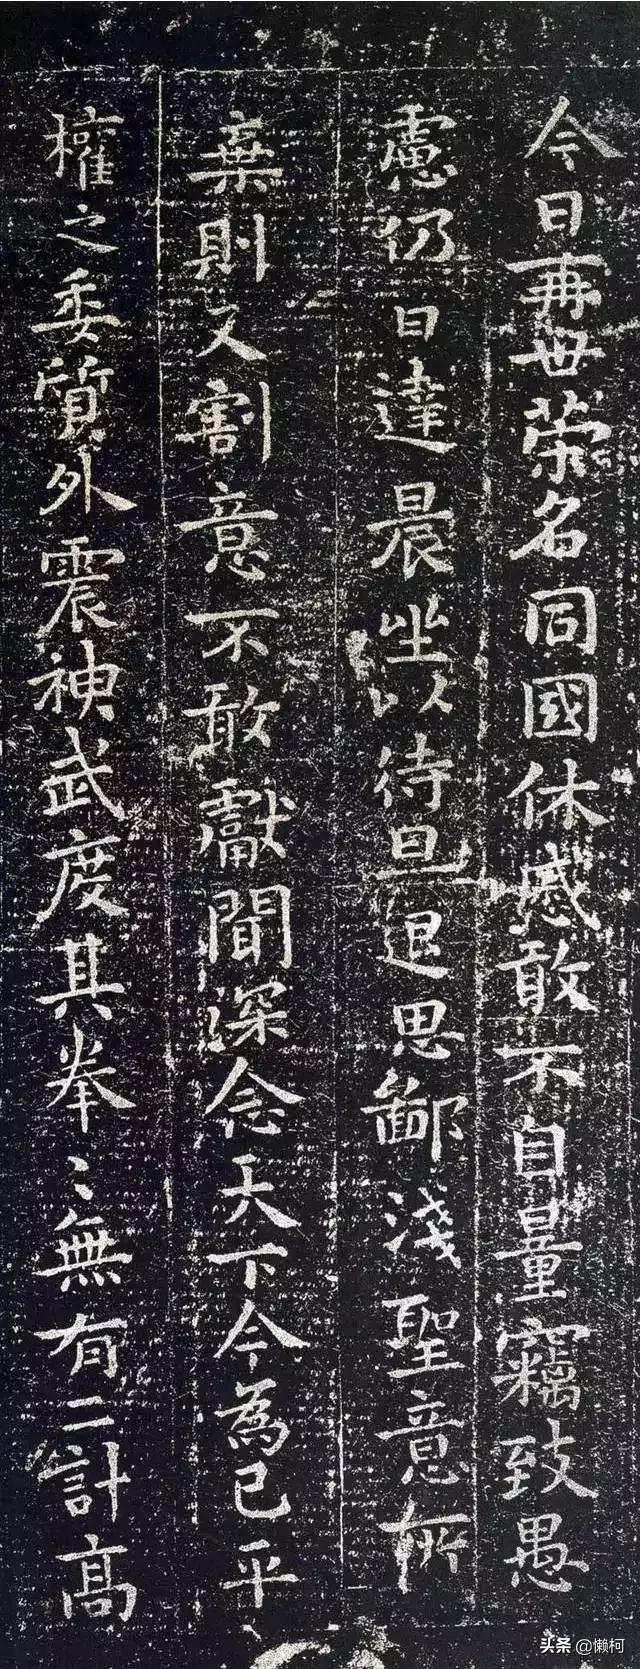 今日再世荣名同國休慼敢不自量竊致愚
慮仍日達晨坐以待旦退思鄙淺聖意所
棄則又割意不敢獻聞深念天下今為已平
權之委質外震神武度其拳〻無有二計高
头条 @懒柯